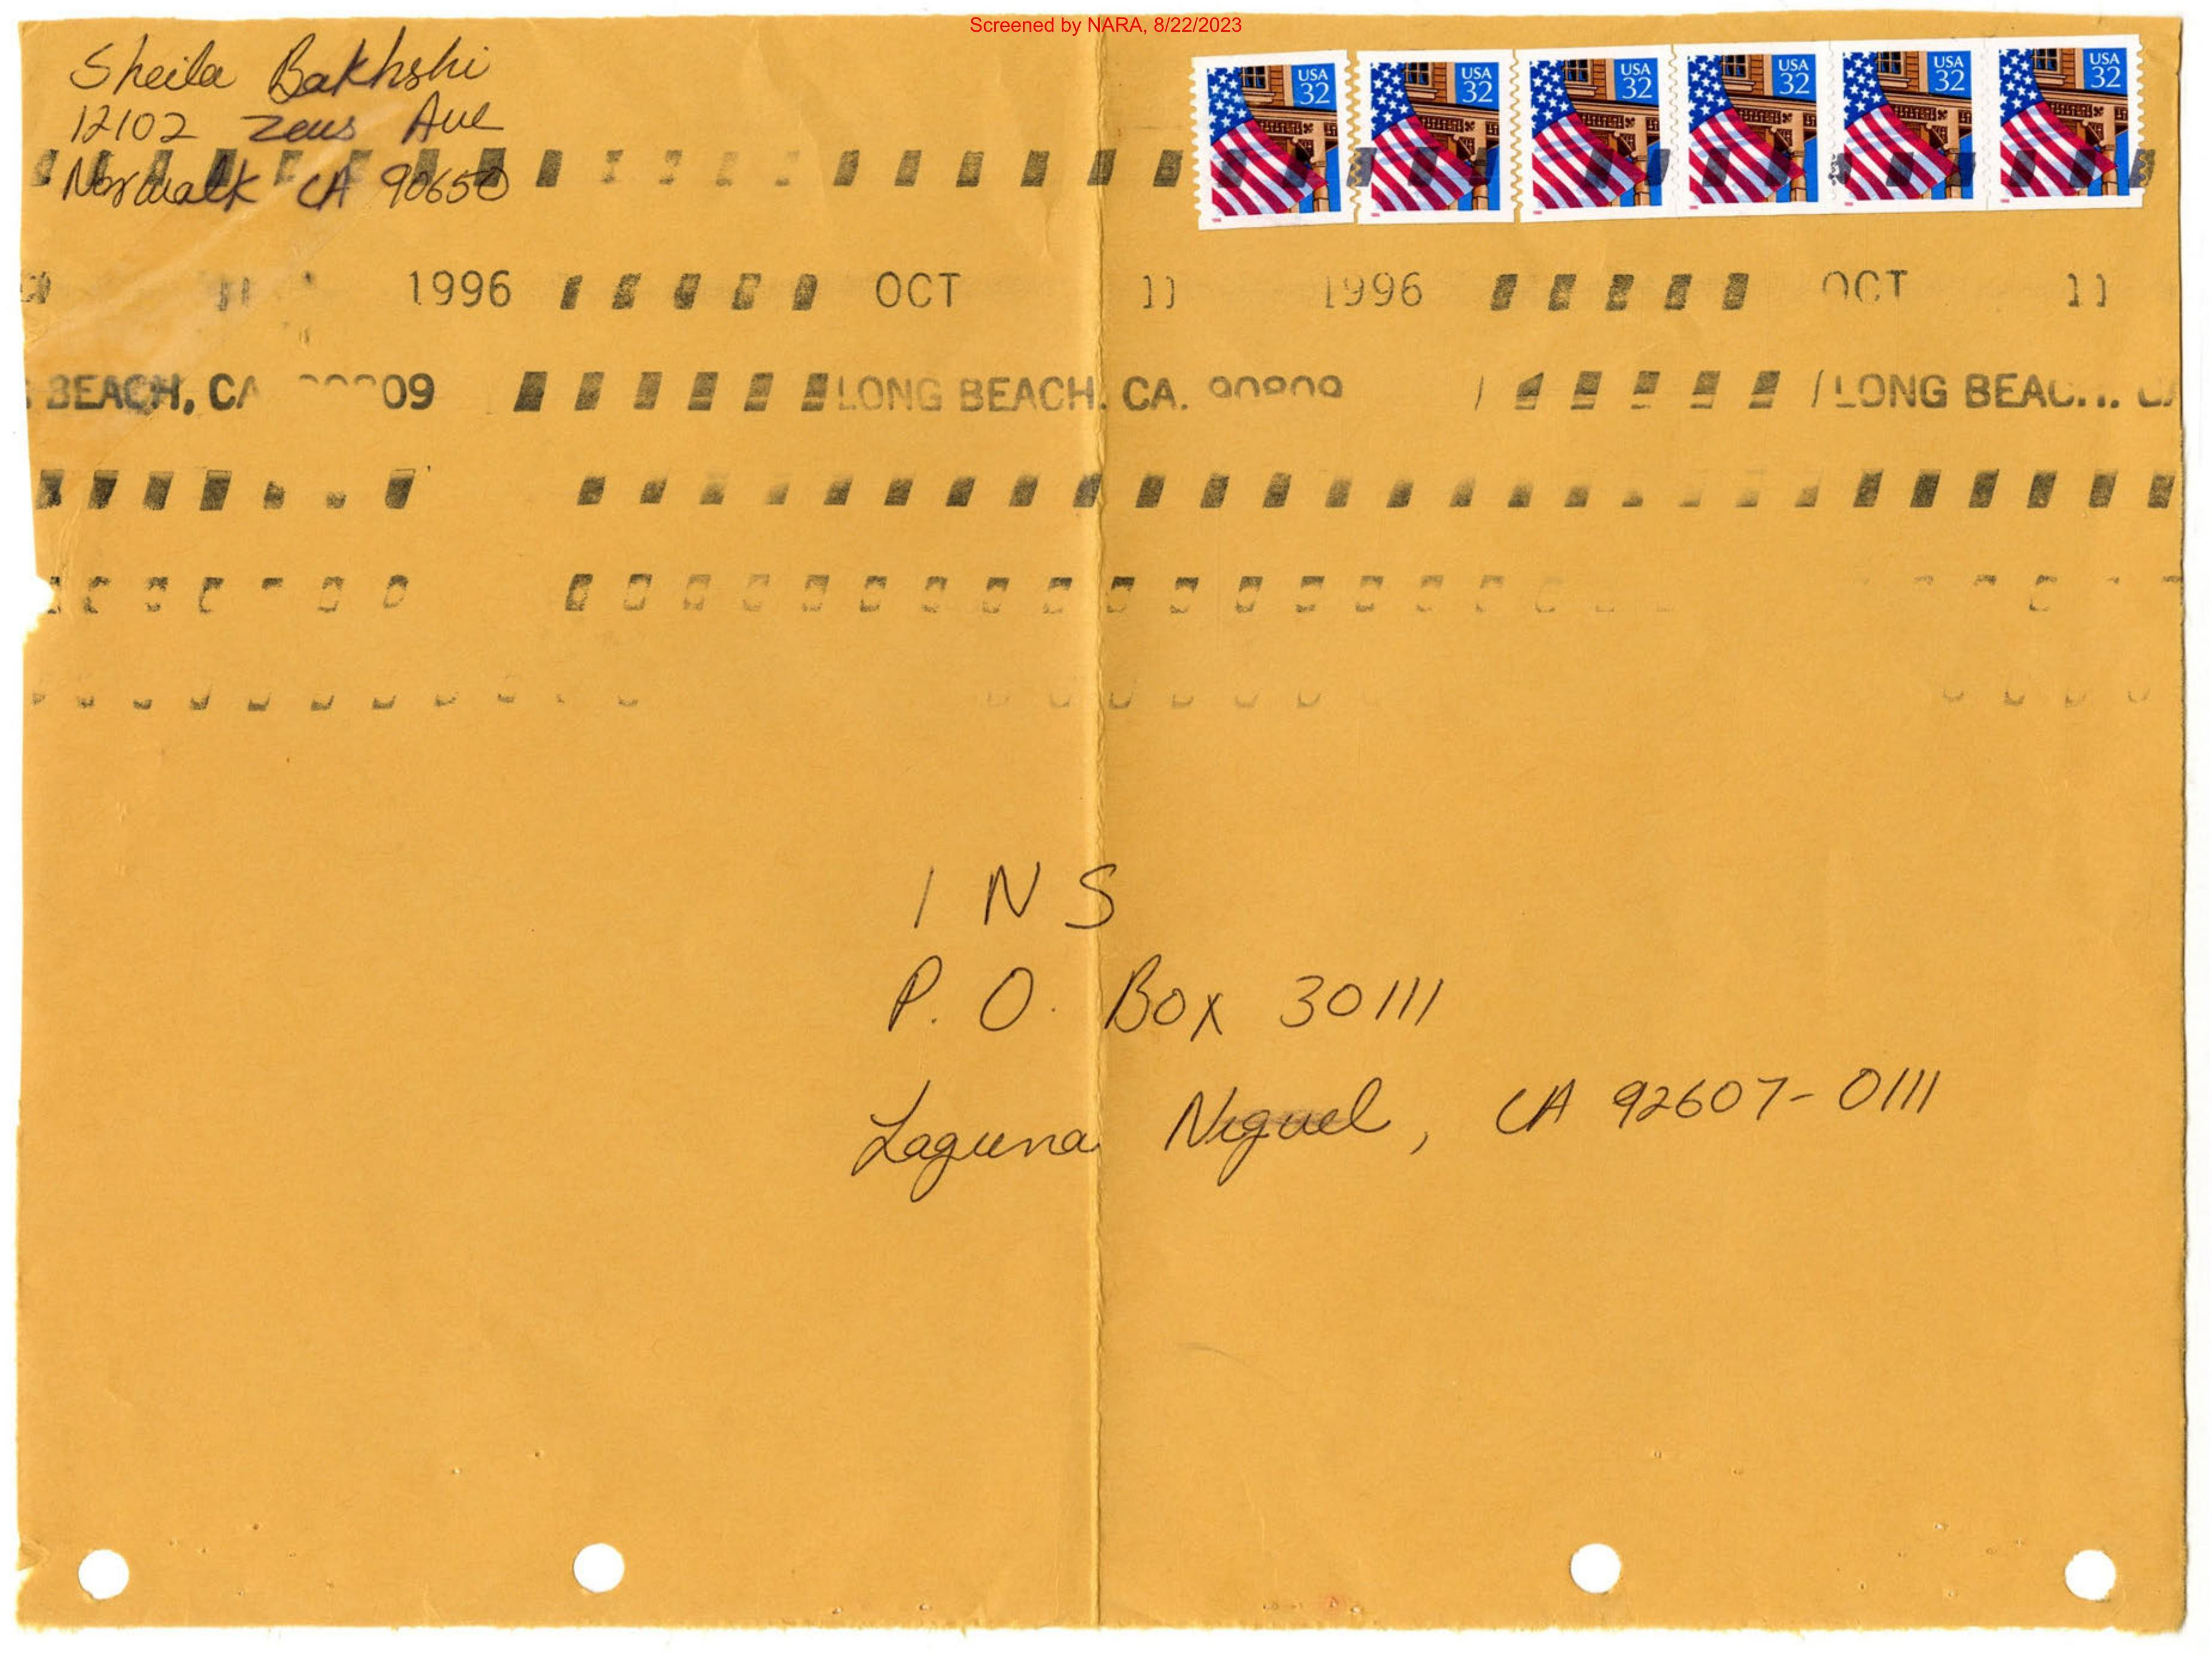 Screened by NARA, 8/22/2023
Sheila Bakhshi
12102 Zeus Ave
Norwalk CA 90650
USA 32 USA 32 USA 32 USA 32 USA 32 USA 32
11 1996 OCT 11 1996 OCT 11
BEACH, CA 09 LONG BEACH, CA. 90809 LONG BEAC
INS
P. O. Box 30111
Laguna Niguel, CA 92607-0111